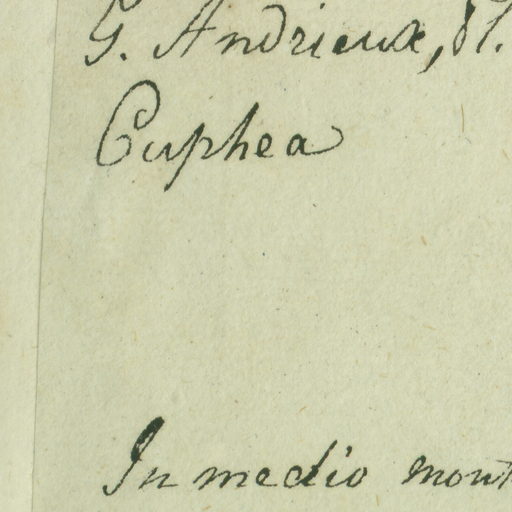 G. Andrieux, Pl.
Cuphea
In medio mont